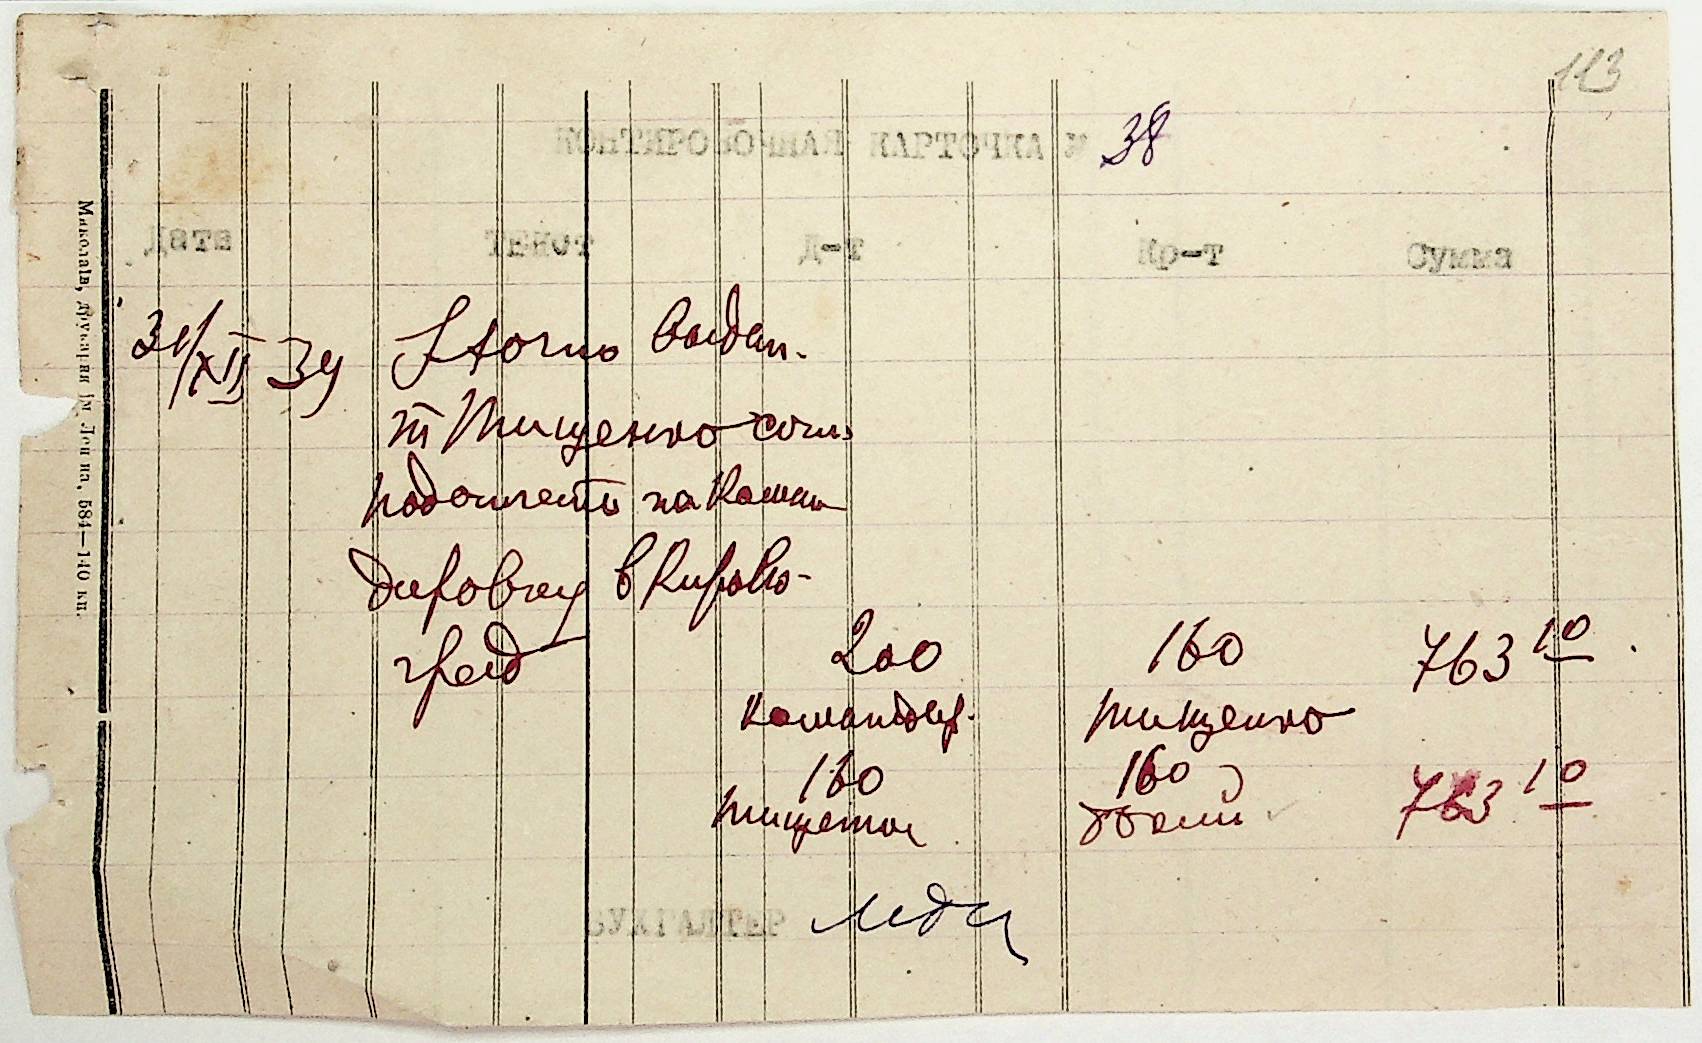 113
КОНТИРОВОЧНАЯ КАРТОЧКА № 38
Дата Текст Д-т Кр-т Сумма
31/XII 39 Storno выдан.
т Тищенко согл.
подотчета на коман
дировку в Кирово-
град 200 160 763 10
командир. Тищенко
160 160 763 10
Тищенко
БУХГАЛТЕР
Миколаїв, друкарня ім. Леніна, 584—140 кн.